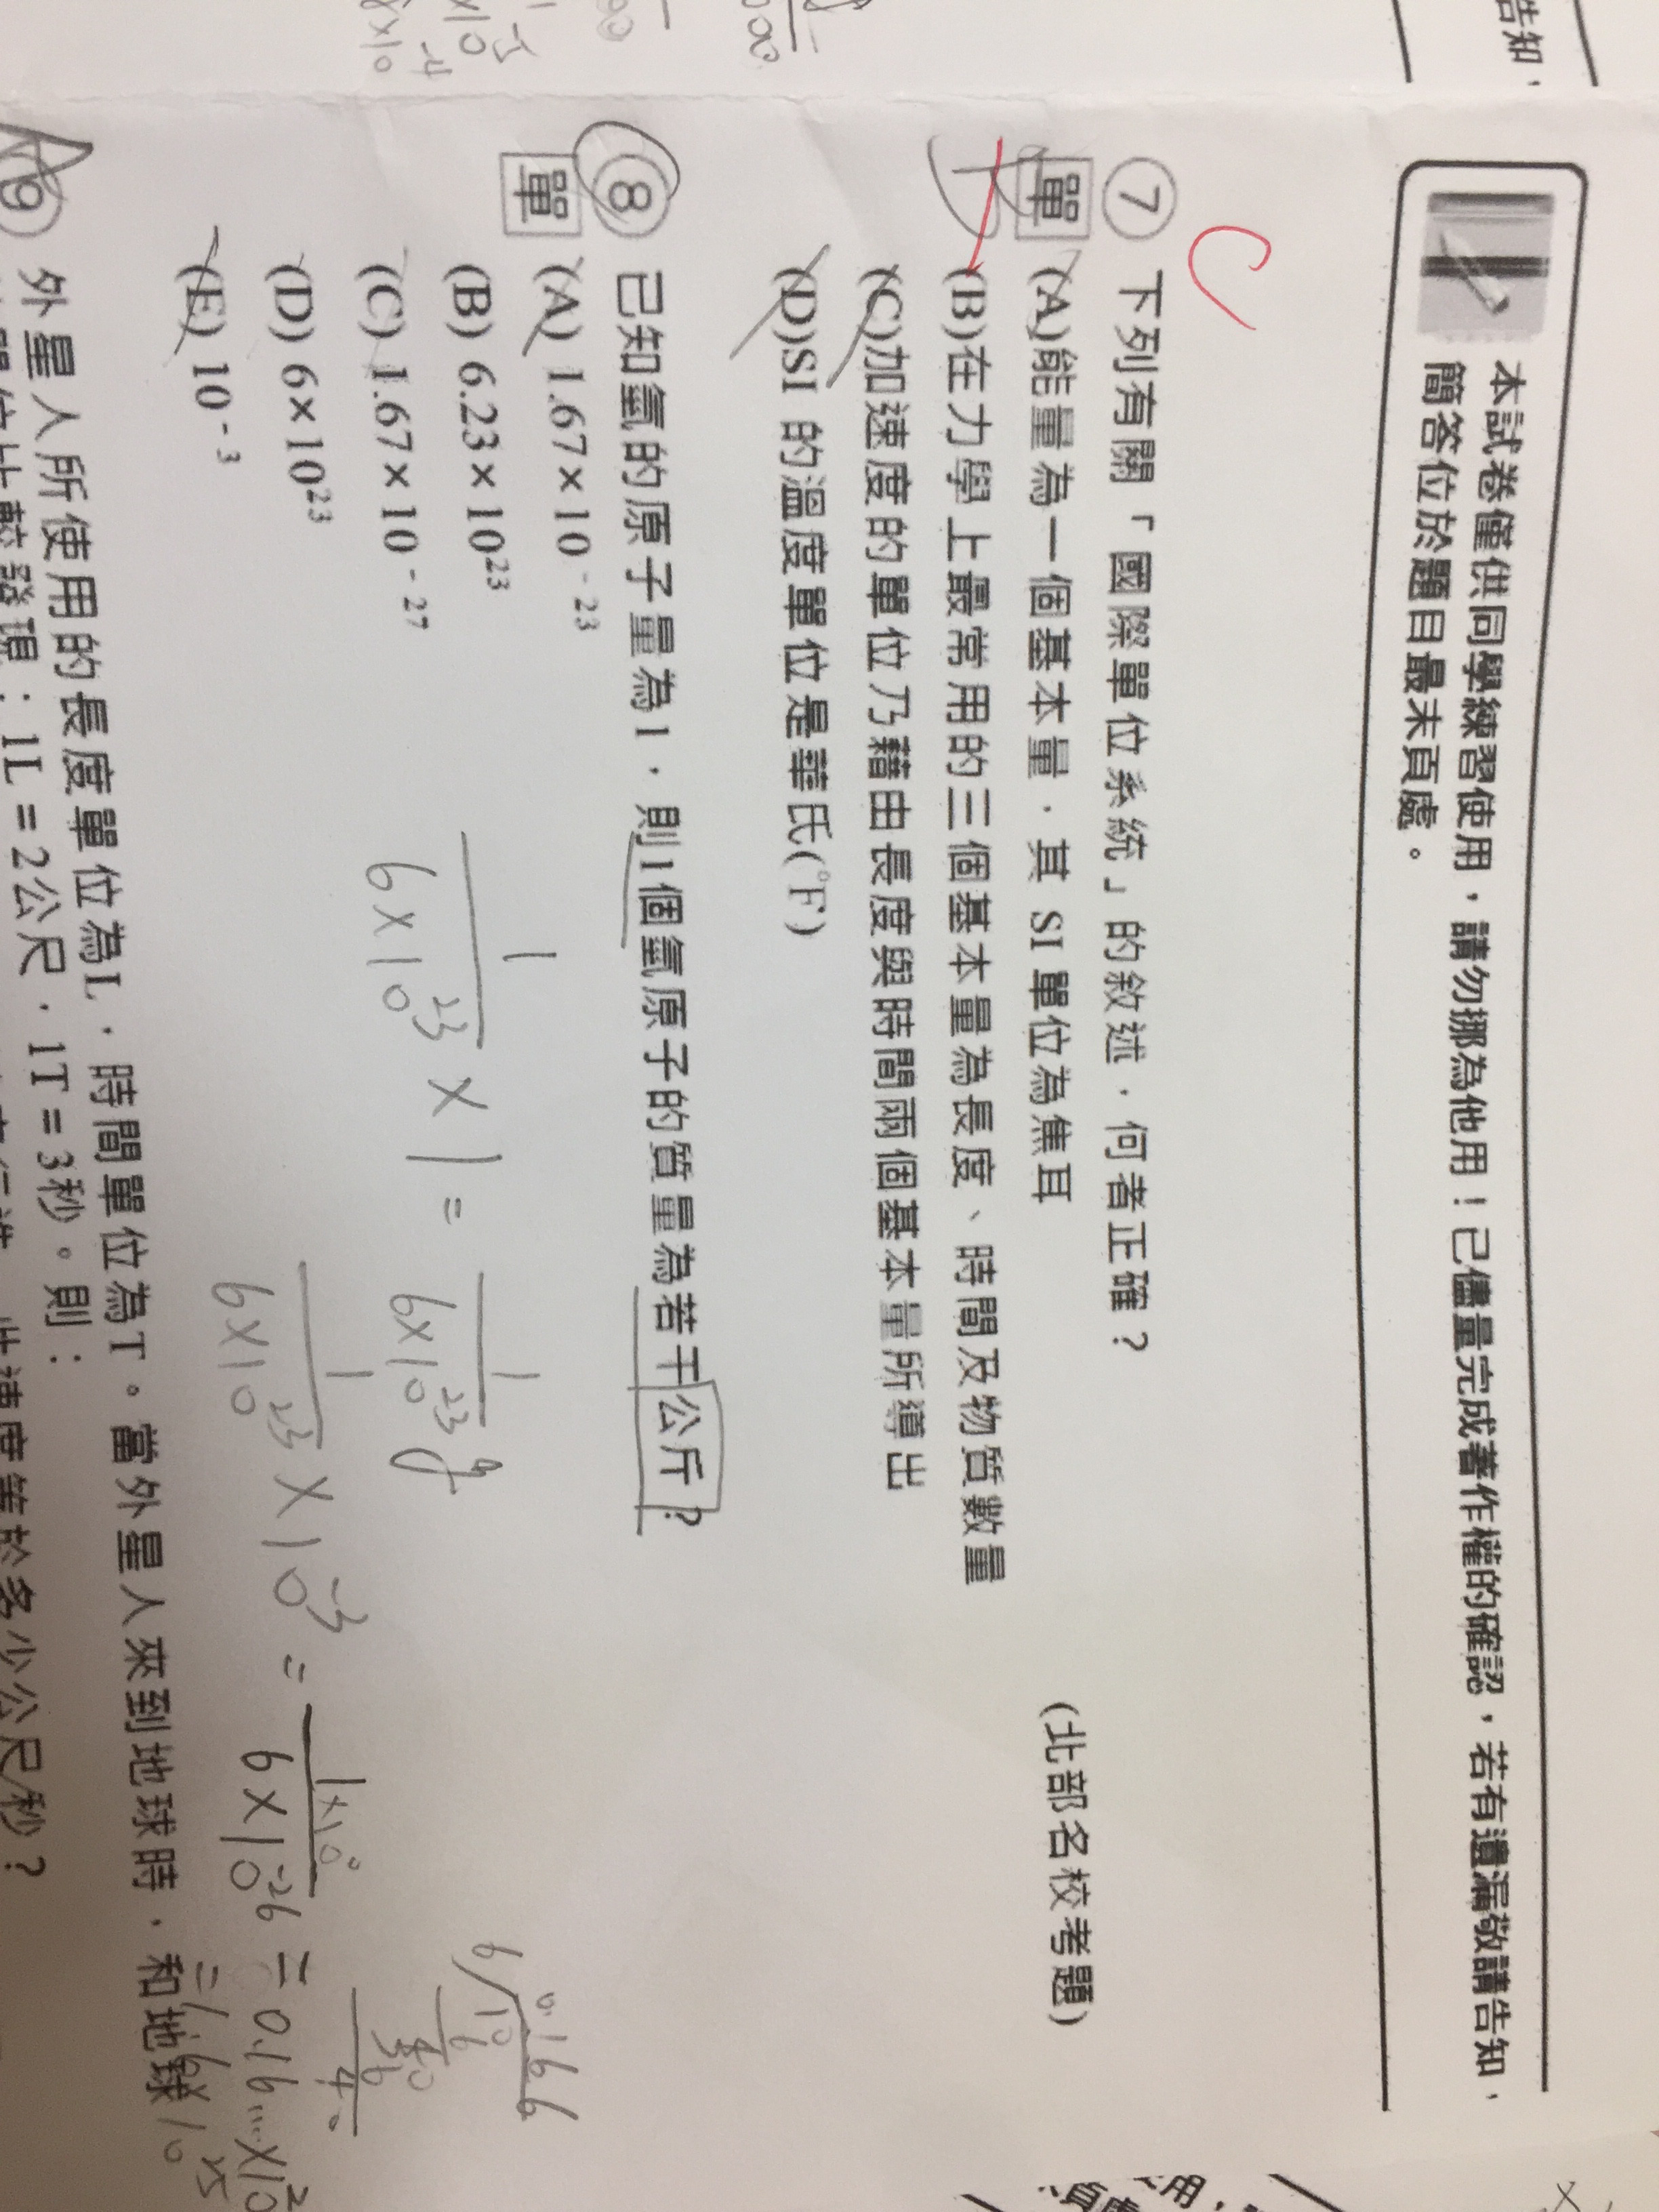 告知，
本試卷僅供同學練習使用，請勿挪為他用！已儘量完成著作權的確認，若有遺漏敬請告知，
簡答位於題目最末頁處。
C
7 下列有關「國際單位系統」的敘述，何者正確？
單 (A)能量為一個基本量，其 SI 單位為焦耳 (北部名校考題)
(B)在力學上最常用的三個基本量為長度、時間及物質數量
(C)加速度的單位乃藉由長度與時間兩個基本量所導出
(D)SI 的溫度單位是華氏(°F)
8 已知氫的原子量為1，則1個氫原子的質量為若干公斤？
單 (A) 1.67×10⁻²³
(B) 6.23×10²³
(C) 1.67×10⁻²⁷
(D) 6×10²³
(E) 10⁻³
1/6×10²³ × 1 = 1/6×10²³ g
1/6×10²³ × 10⁻³ = 1×10⁰/6×10⁻²⁶ = 0.16...×10
0.166
9 外星人所使用的長度單位為L，時間單位為T。當外星人來到地球時，和地球
1L = 2公尺，1T = 3秒。則：